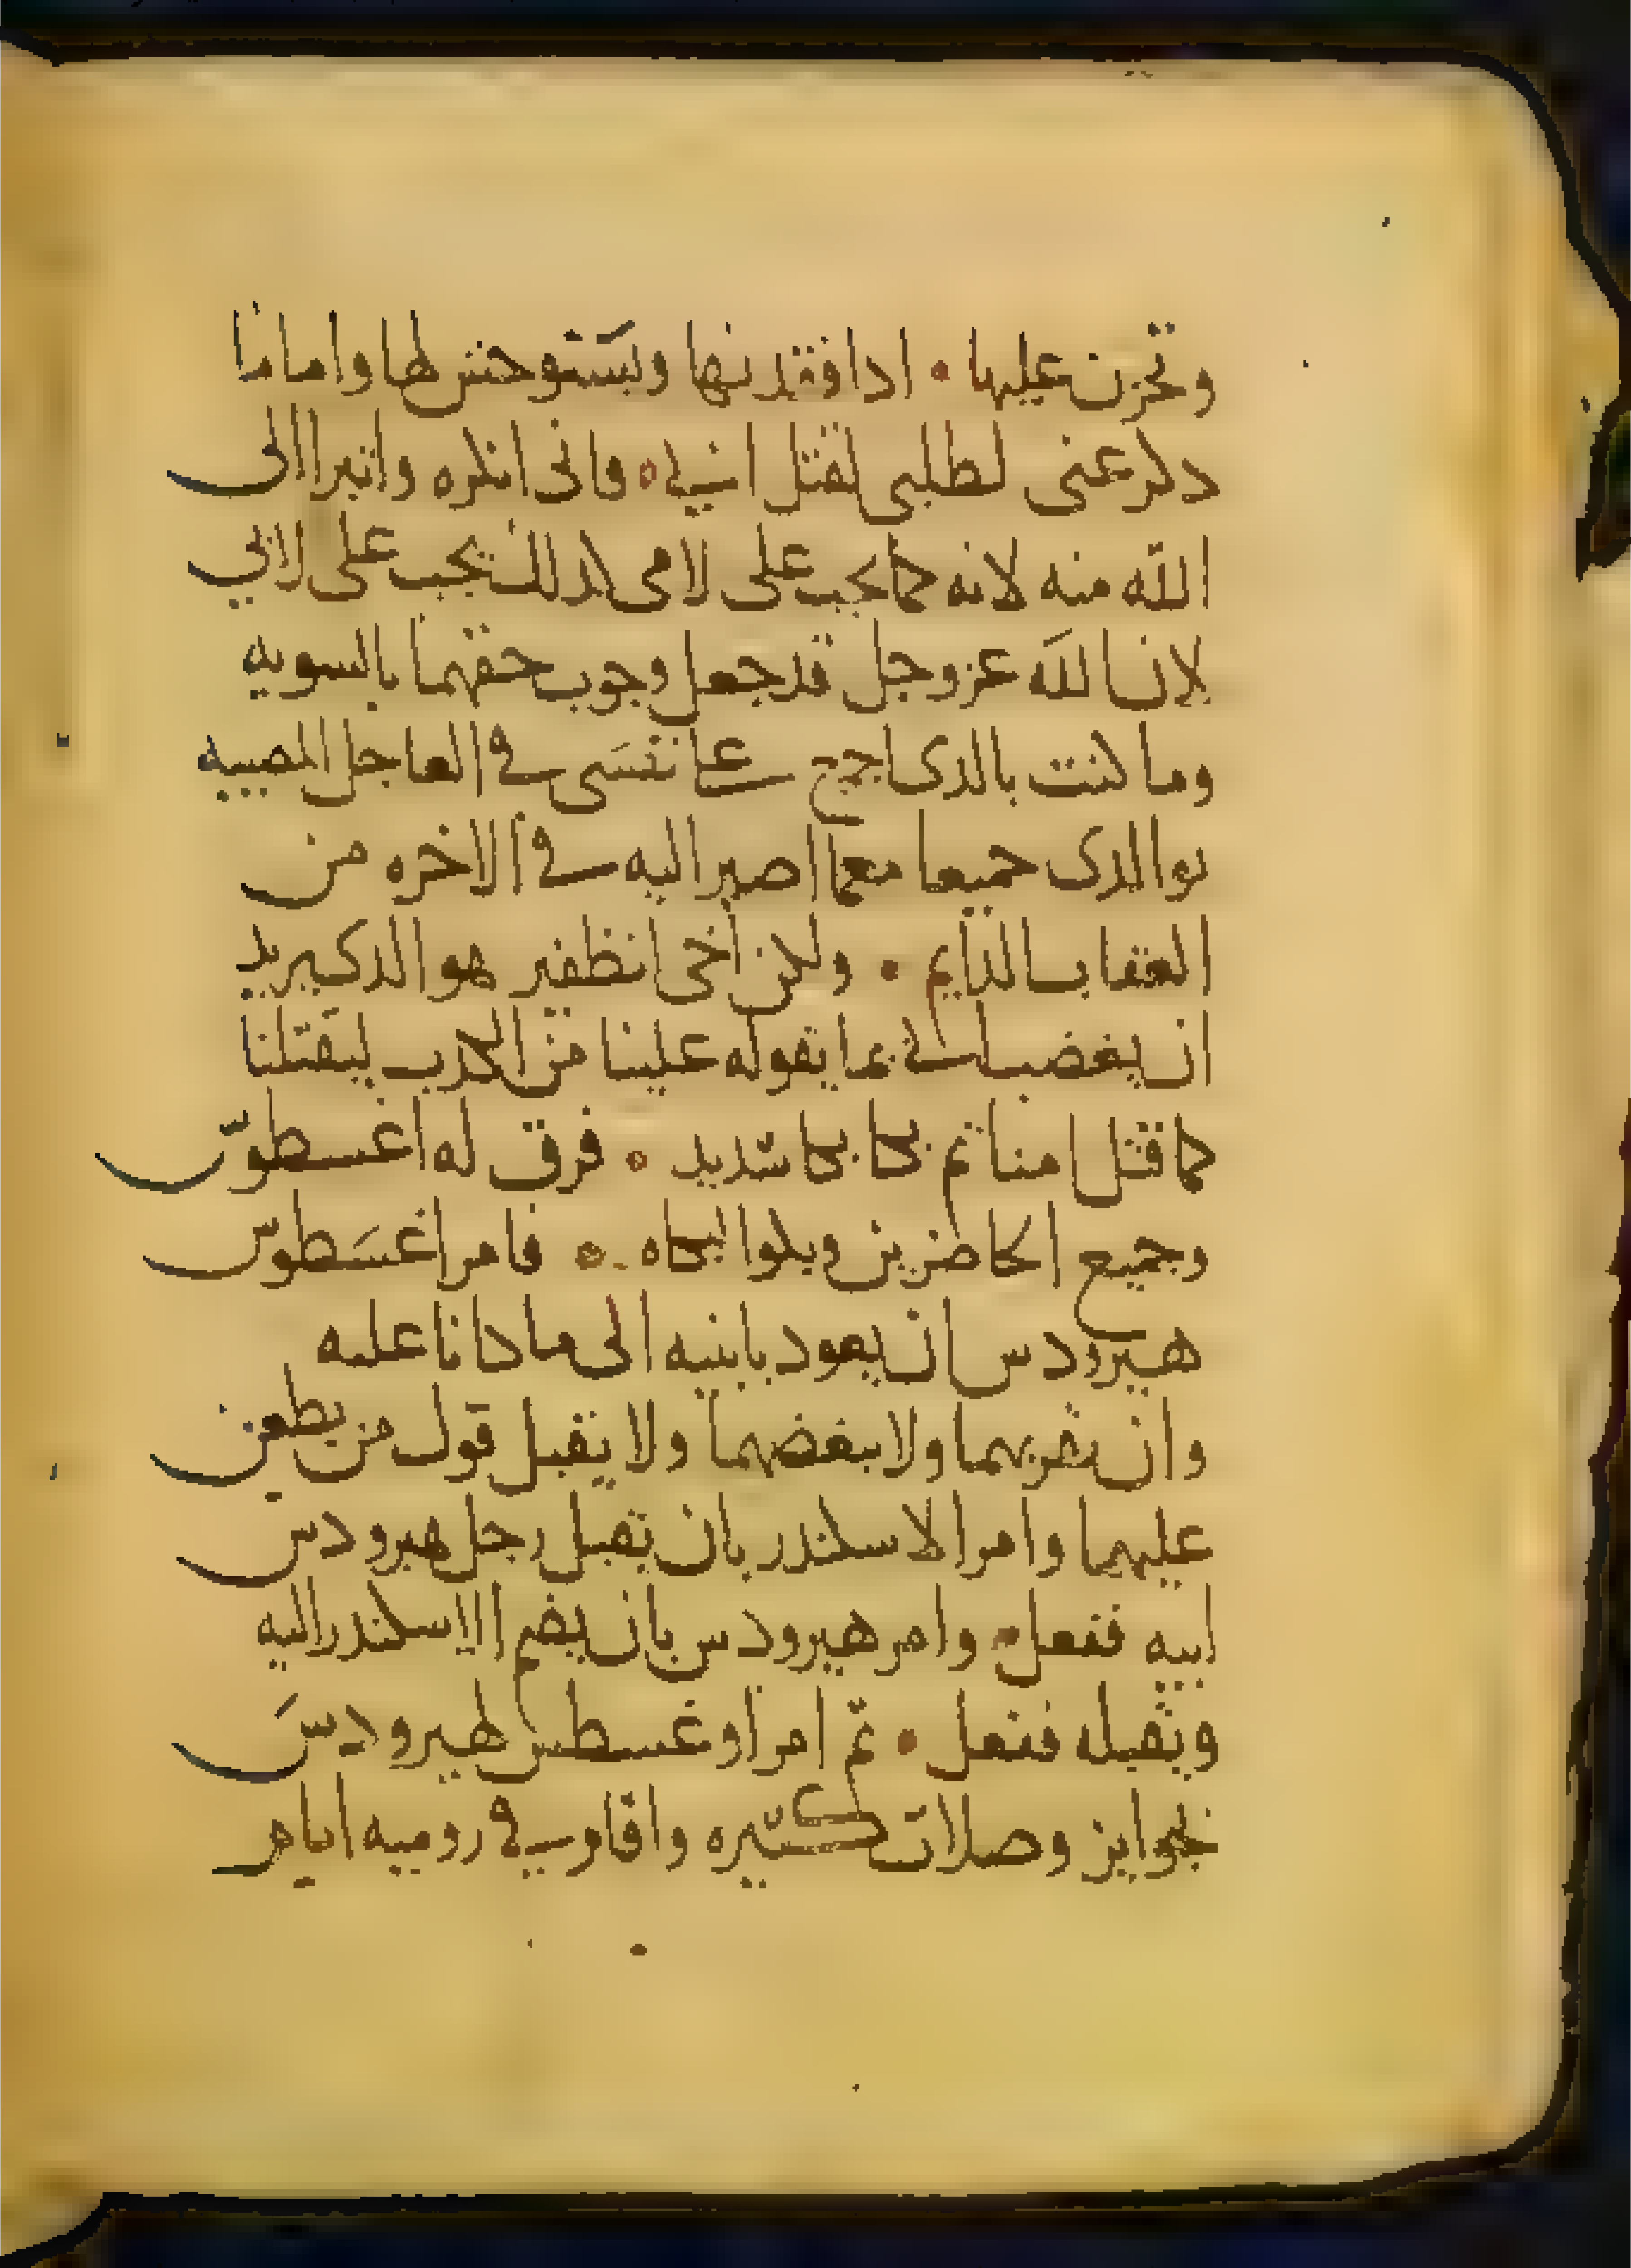 وتحزن عليها • ادا فقدتها ويستوحش لها واما ما
دكر عنى لطلبى لقتل ابي ه فانى انكره واتبرا الى
الله منه لانه كما يجب على لامى كدلك يجب على لابي
لان الله عز وجل قد جعل وجوب حقهما بالسويه
وما كنت بالدى اجمع على نفسى في العاجل المصيبه
بوالدى جميعا معما اصير اليه في الاخره من
العقاب الدايم • ولكن اخى انظفير هو الدى يريد
ان يغضبك بما يقوله علينا من الكدب ليقتلنا
كما قتل امنا تم بكا بكا شديد ه فرق له اغسطوس
وجميع الحاضرين وبكوا لبكاه ه فامر اغسطوس
هيرودس ان يعود بابنيه الى ما كانا عليه
وان يقربهما ولا يبغضهما ولا يقبل قول من يطعن
عليهما وامر الاسكندر بان يقبل رجل هيرودس
ابيه ففعل • وامر هيرودس بان يضم الاسكندر اليه
ويقبله ففعل • تم امر اوغسطس لهيرودس
بجوايز وصلات كتيره واقاموا في روميه ايام